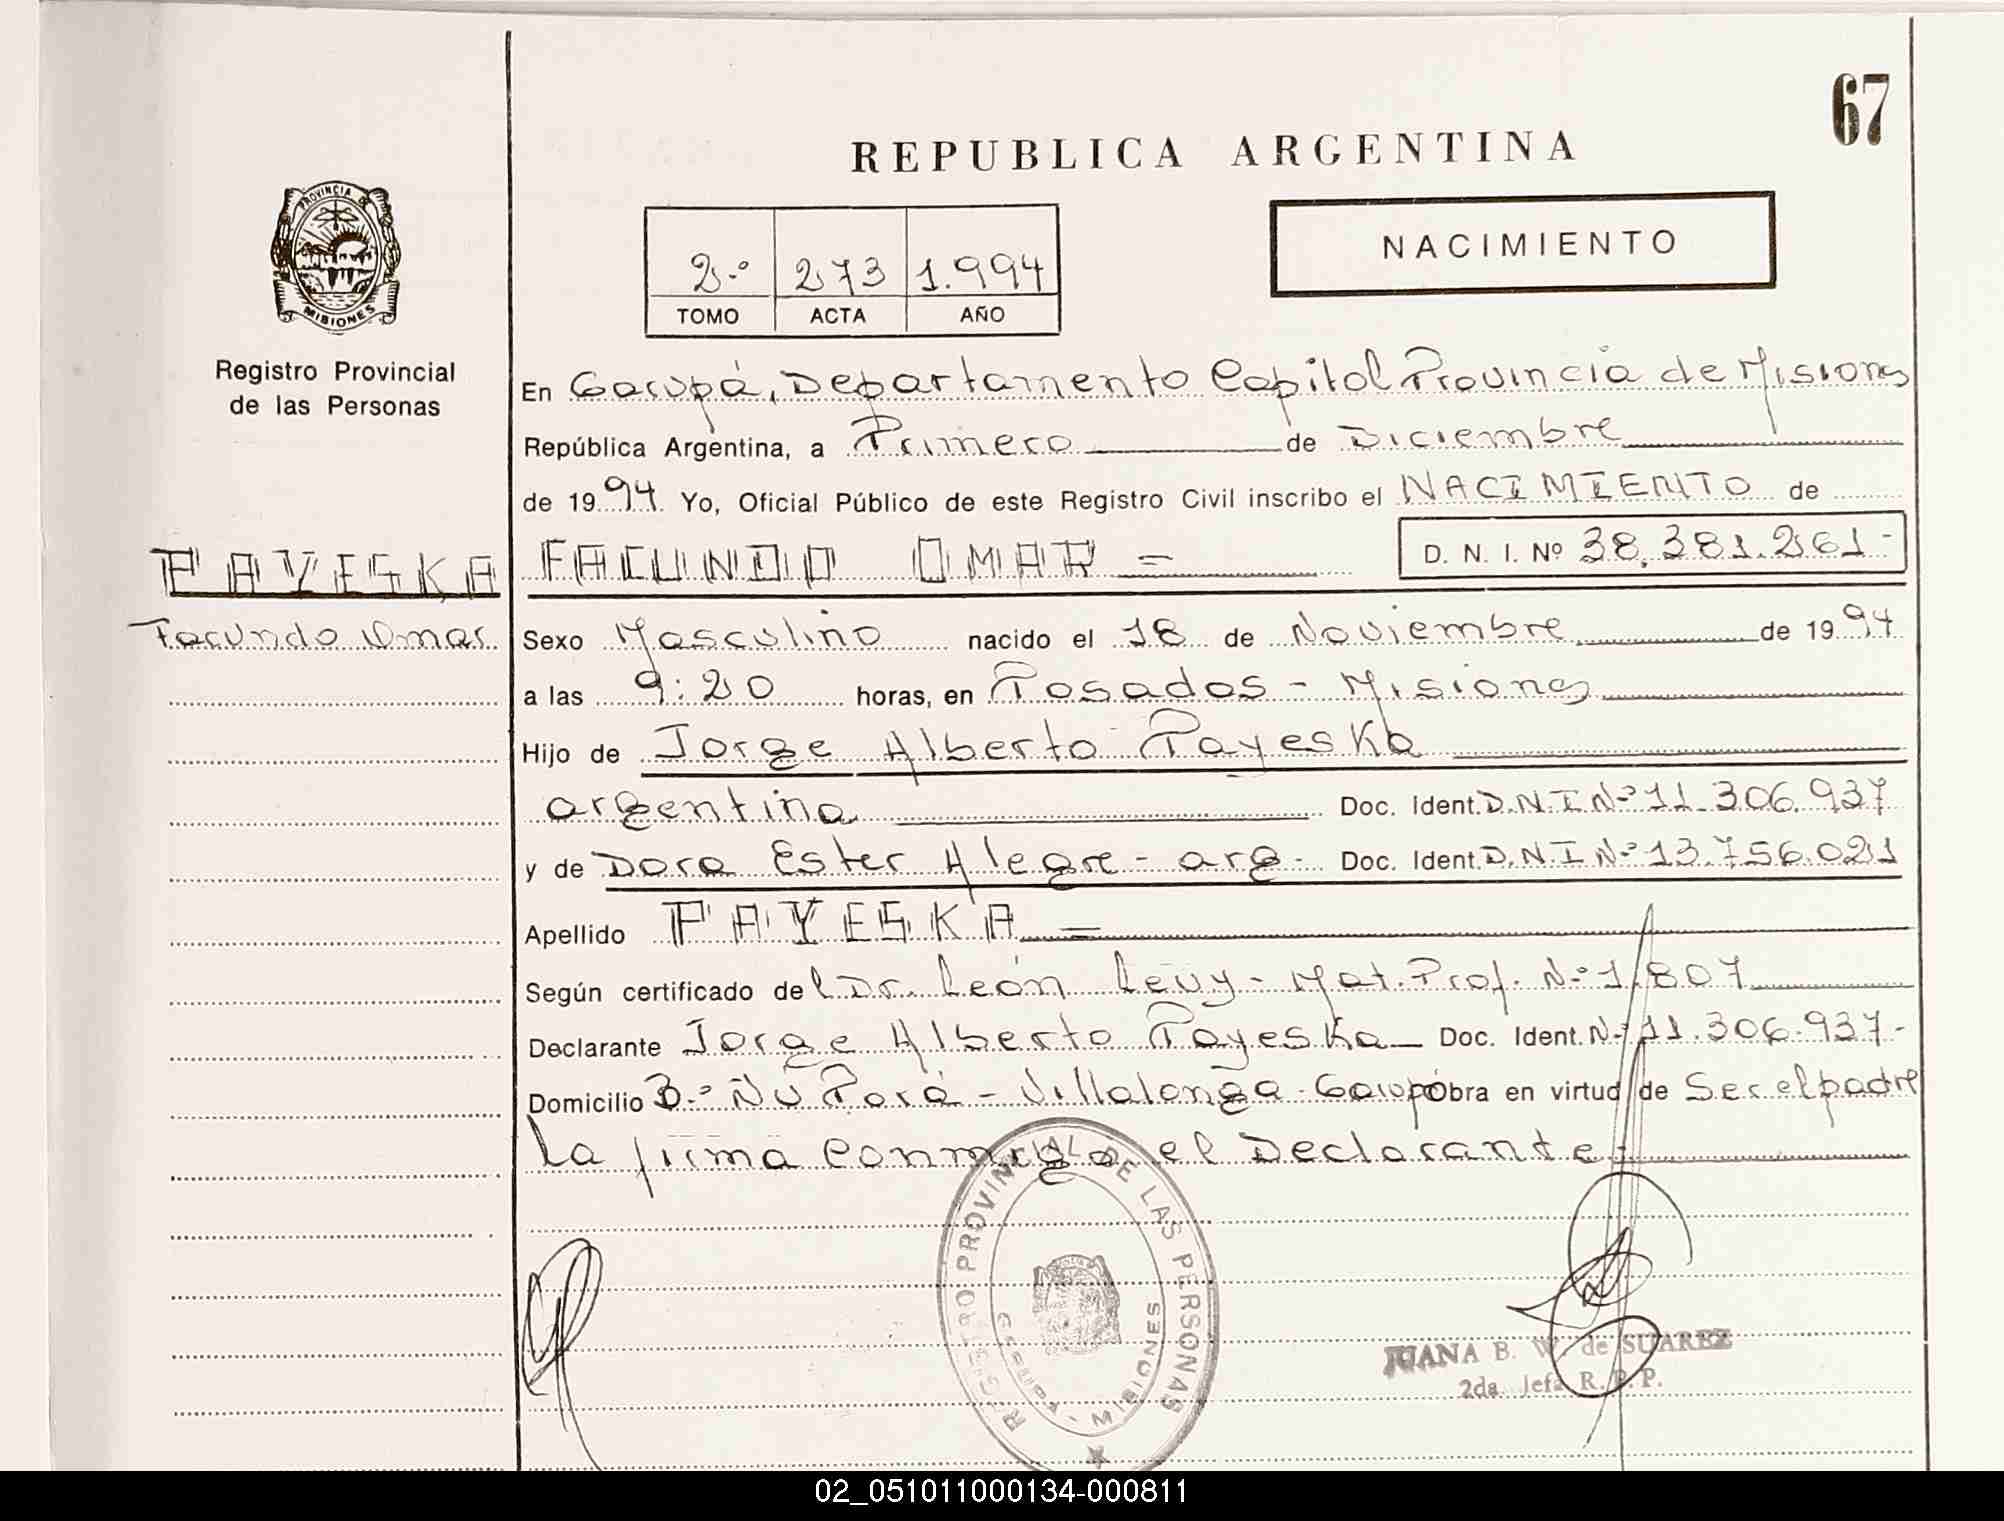 67
REPUBLICA ARGENTINA
PROVINCIA DE
MISIONES
Registro Provincial
de las Personas
2.º 273 1.994
TOMO ACTA AÑO
NACIMIENTO
En Garupá, Departamento Capital Provincia de Misiones
República Argentina, a Primero de Diciembre
de 1994 Yo, Oficial Público de este Registro Civil inscribo el NACIMIENTO de
PAYESKA FACUNDO OMAR = D. N. I. Nº 38.381.261-
Facundo Omar. Sexo Masculino nacido el 18 de Noviembre de 1994
a las 9:20 horas, en Posadas - Misiones
Hijo de Jorge Alberto Payeska
argentina Doc. Ident. D.N.I Nº 11.306.937
y de Dora Ester Alegre - arg - Doc. Ident. D.N.I Nº 13.756.021
Apellido PAYESKA =
Según certificado del Dr. León Levy - Mat. Prof. Nº 1.807
Declarante Jorge Alberto Payeska Doc. Ident. Nº 11.306.937-
Domicilio B.º Ñu Porá - Villalonga - Garupá obra en virtud de Ser el padre
La firma conmigo el Declarante
REGISTRO PROVINCIAL DE LAS PERSONAS
MISIONES
JUANA B. W. de SUAREZ
2da. Jefa R. P. P.
02_051011000134-000811